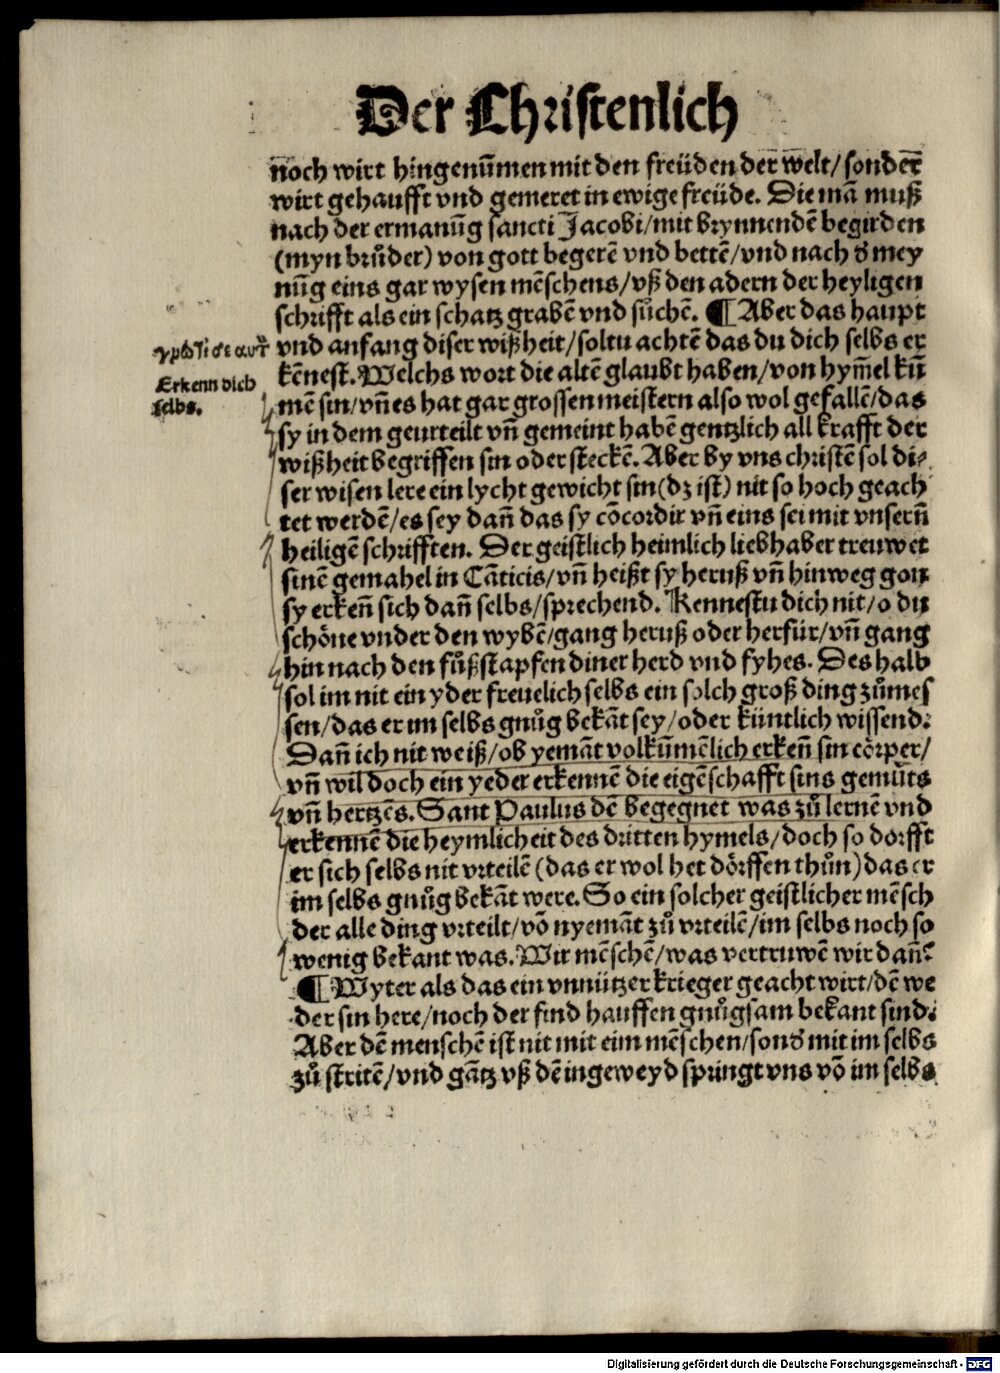 Der Christenlich
noch wirt hingenūmen mit den freüden der welt/ sonder
wirt gehaufft vnd gemeret in ewige freüde. Die mā muß
nach der ermanūg sancti Jacobi/ mit brynnendē begirden
(myn brůder) von gott begerē vnd bettē/ vnd nach d' mey
nūg eins gar wysen mēschens/ vß den adern der heyligen
schrifft als ein schatz grabē vnd sůchē. ¶ Aber das haupt
vnd anfang diser wißheit/ soltu achtē das du dich selbs er
γνῶθι σεαυτὸν
Erkenn dich
selbs.
kēnest. Welchs wort die altē glaubt haben/ von hym̄el kū
mē sin/ vn̄ es hat gar grossen meistern also wol gefallē/ das
sy in dem geurteilt vn̄ gemeint habē gentzlich all krafft der
wißheit begriffen sin oder steckē. Aber by vns christē sol di-
ser wisen lere ein lycht gewicht sin (dz ist) nit so hoch geach
tet werdē/ es sey dan̄ das sy cōcordir vn̄ eins sei mit vnsern̄
heiligē schrifften. Der geistlich heimlich liebhaber treuwet
sinē gemahel in Cāticis/ vn̄ heißt sy heruß vn̄ hinweg gon
sy erken̄ sich dan̄ selbs/ sprechend. Kennestu dich nit/ o du
schöne vnder den wybē/ gang heruß oder herfür/ vn̄ gang
hin nach den fůßstapfen diner herd vnd fyhes. Des halb
sol im nit ein yder freuelich selbs ein solch groß ding zůmes
sen/ das er im selbs gnůg bekāt sey/ oder küntlich wissend.
Dan̄ ich nit weiß/ ob yemāt volkūmēlich erken̄ sin cörper/
vn̄ wil doch ein yeder erkennē die eigēschafft sins gemüts
vn̄ hertzēs. Sant Paulus dē begegnet was zů lernē vnd
erkennē die heymlicheit des dritten hymels/ doch so dorfft
er sich selbs nit vrteilē (das er wol het dörffen thůn) das er
im selbs gnůg bekāt were. So ein solcher geistlicher mēsch
der alle ding vrteilt/ vō nyemāt zů vrteilē/ im selbs noch so
wenig bekant was. Wir mēschē/ was vertruwē wir dan̄?
¶ Wyter als das ein vnnützer krieger geacht wirt/ dē we
der sin here/ noch der find hauffen gnůgsam bekant sind.
Aber dē menschē ist nit mit eim mēschen/ sond' mit im selbs
zů stritē/ vnd gātz vß dē ingeweyd springt vns vō im selbs
Digitalisierung gefördert durch die Deutsche Forschungsgemeinschaft - DFG